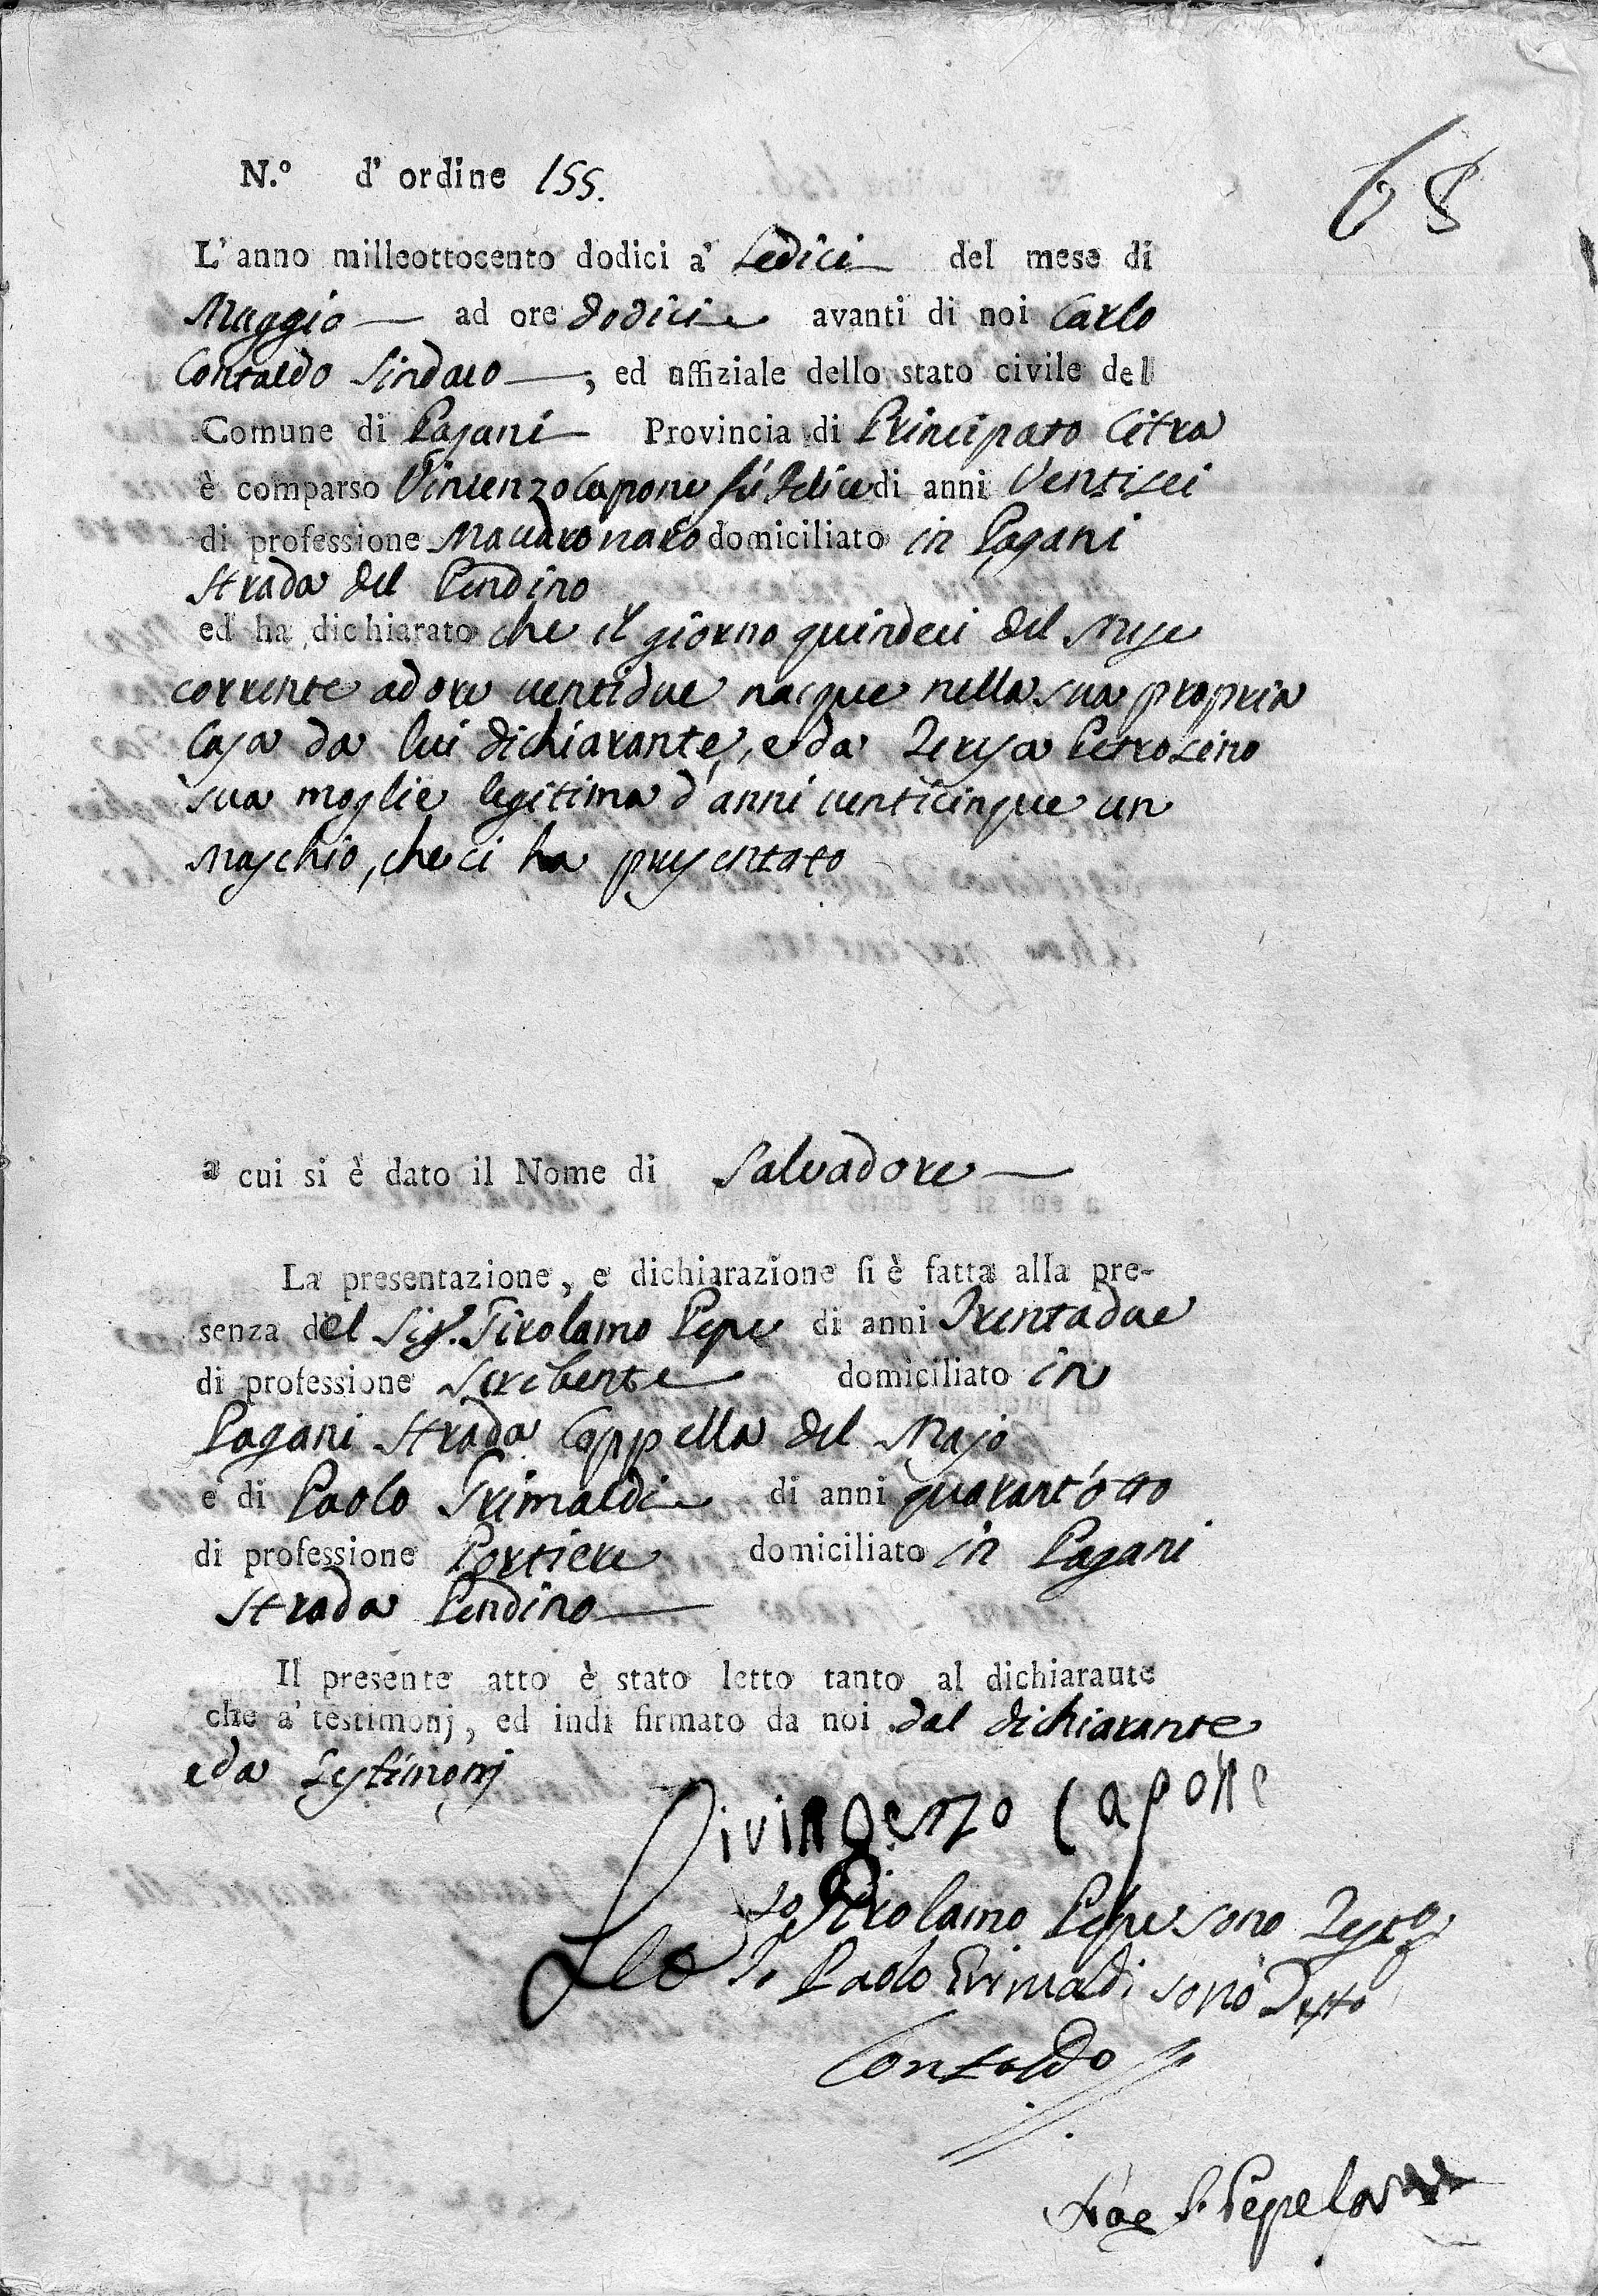 68
N.º d' ordine 155.
L'anno milleottocento dodici a' Sedici del mese di
Maggio ad ore dodici avanti di noi Carlo
Contaldo Sindaco ; ed uffiziale dello stato civile del
Comune di Pagani Provincia di Principato Citra
è comparso Vincenzo Capone fù Felice di anni Ventisei
di professione Maccaronaro domiciliato in Pagani
Strada del Pendino
ed ha dichiarato che il giorno quindeci del Mese
corrente ad ore ventidue nacque nella sua propria
Casa da lui dichiarante, e da Teresa Petrosino
sua moglie legitima d'anni venticinque un
Maschio, che ci ha presentato
a cui si è dato il Nome di Salvadore
La presentazione, e dichiarazione si è fatta alla pre-
senza del Sig. Girolamo Pepe di anni Trentadue
di professione Scribente domiciliato in
Pagani Strada Cappella del Majo
e di Paolo Grimaldi di anni quarant'otto
di professione Portiere domiciliato in Pagani
Strada Pendino
Il presente atto è stato letto tanto al dichiaraute
che a' testimonj, ed indi firmato da noi dal dichiarante
e da Testimonj
Capone
Girolamo Pepe sono Testo
Io Paolo Grimaldi sono Testo
Contaldo